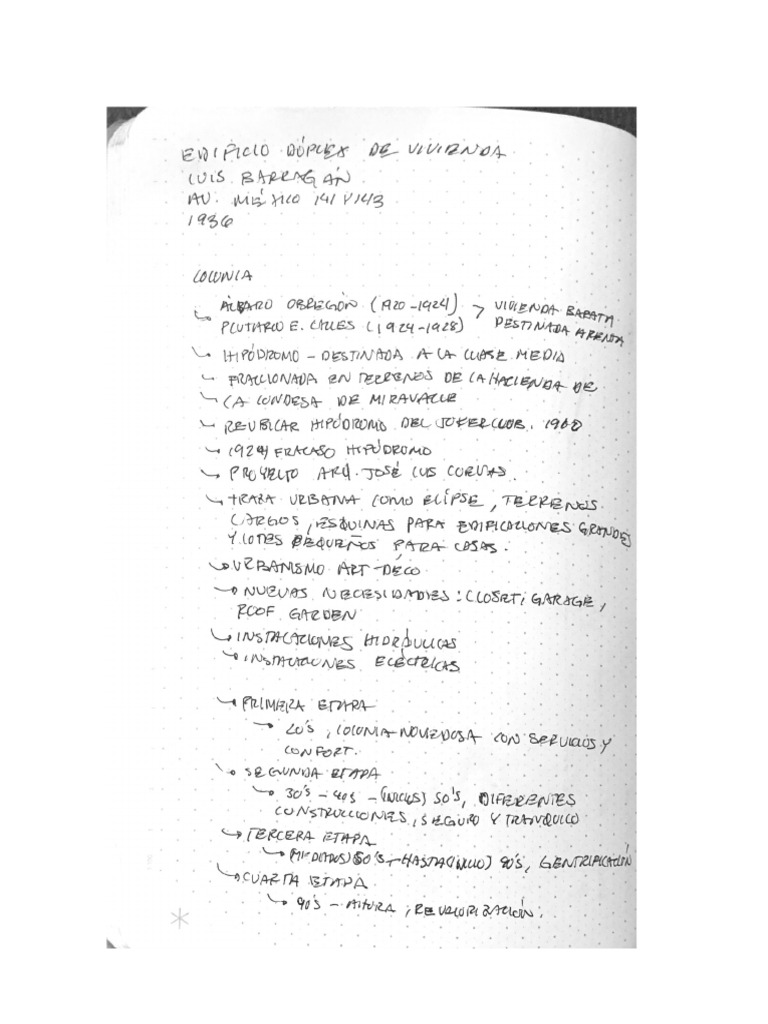 EDIFICIO DÚPLEX DE VIVIENDA
LUIS BARRAGÁN
AV. MÉXICO 141 Y 143
1936
COLONIA
ÁLVARO OBREGÓN (1920-1924) > VIVIENDA BARATA
PLUTARCO E. CALLES (1924-1928) DESTINADA A RENTA
HIPÓDROMO - DESTINADA A LA CLASE MEDIA
FRACCIONADA EN TERRENOS DE LA HACIENDA DE
LA CONDESA DE MIRAVALLE
REUBICAR HIPÓDROMO DEL JOKER CLUB,
(1924) FRACASO HIPÓDROMO
PROYECTO ARQ. JOSÉ LUIS CUEVAS.
TRAZA URBANA COMO ELÍPSE, TERRENOS
LARGOS, ESQUINAS PARA EDIFICACIONES GRANDES
Y LOTES PEQUEÑOS PARA CASAS.
URBANISMO ART-DÉCO
NUEVAS NECESIDADES: CLOSET, GARAGE,
ROOF GARDEN
INSTALACIONES HIDRÁULICAS
INSTALACIONES ELÉCTRICAS
PRIMERA ETAPA
20'S, COLONIA NOVEDOSA CON SERVICIOS Y
CONFORT.
SEGUNDA ETAPA
30'S - 40'S - (INICIOS) 50'S, DIFERENTES
CONSTRUCCIONES, SEGURO Y TRANQUILO
TERCERA ETAPA
(MEDIADOS) 50'S - HASTA (INICIO) 90'S, GENTRIFICACIÓN
CUARTA ETAPA
90'S - ALTURA, REVALORIZACIÓN.